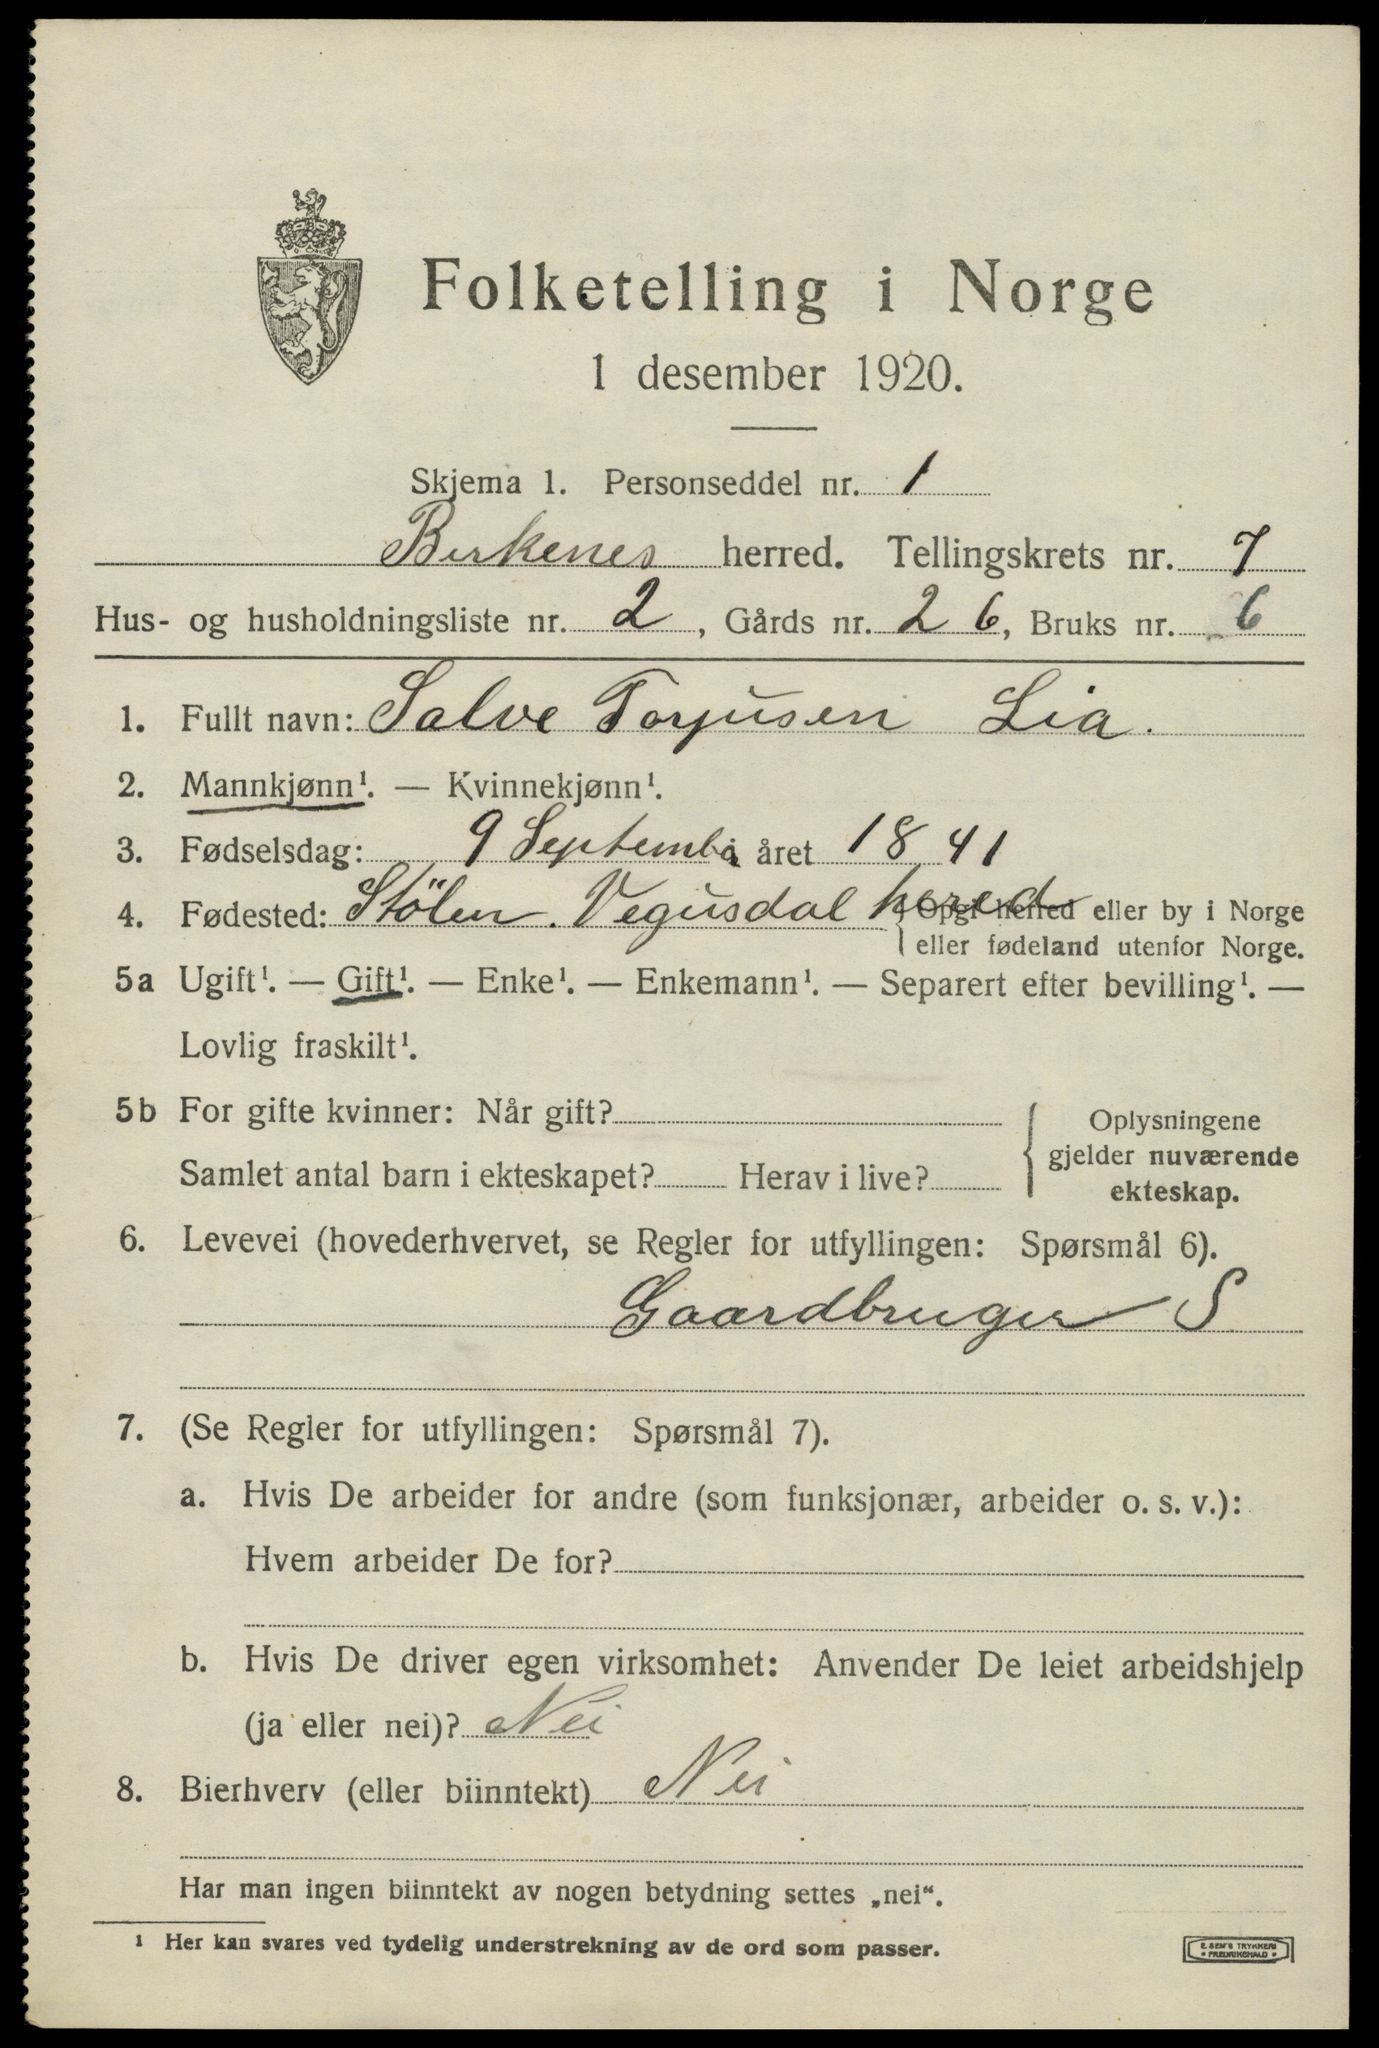 Folketelling i Norge
1 desember 1920.
Skjema 1. Personseddel nr. 1
Birkenes herred. Tellingskrets nr. 7
Hus- og husholdningsliste nr. 2, Gårds nr. 26, Bruks nr. 6
1. Fullt navn: Salve Torjusen Lia.
2. Mannkjønn¹. — Kvinnekjønn¹.
3. Fødselsdag: 9 Septembr året 1841
4. Fødested: Stölen. Vegusdal hered { Opgi herred eller by i Norge
eller fødeland utenfor Norge.
5a Ugift¹. — Gift¹. — Enke¹. — Enkemann¹. — Separert efter bevilling¹. —
Lovlig fraskilt¹.
5b For gifte kvinner: Når gift? { Oplysningene
gjelder nuværende
Samlet antal barn i ekteskapet? Herav i live?
ekteskap.
6. Levevei (hovederhvervet, se Regler for utfyllingen: Spørsmål 6).
Gaardbruger S
7. (Se Regler for utfyllingen: Spørsmål 7).
a. Hvis De arbeider for andre (som funksjonær, arbeider o. s. v.):
Hvem arbeider De for?
b. Hvis De driver egen virksomhet: Anvender De leiet arbeidshjelp
(ja eller nei)? Nei
8. Bierhverv (eller biinntekt) Nei
Har man ingen biinntekt av nogen betydning settes „nei“.
¹ Her kan svares ved tydelig understrekning av de ord som passer.
E. SEM'S TRYKKERI
• FREDRIKSHALD •